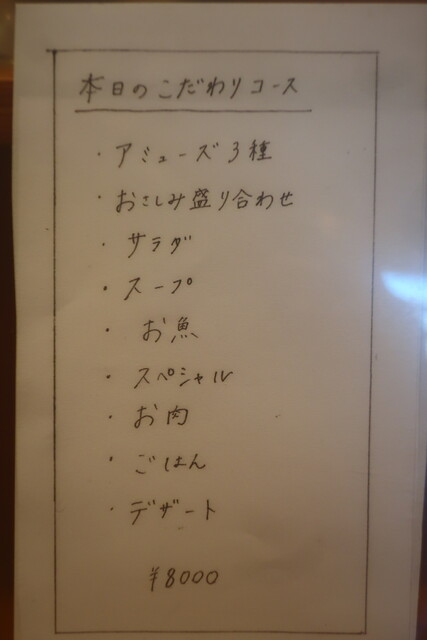 本日のこだわりコース
・アミューズ3種
・おさしみ盛り合わせ
・サラダ
・スープ
・お魚
・スペシャル
・お肉
・ごはん
・デザート
¥8000